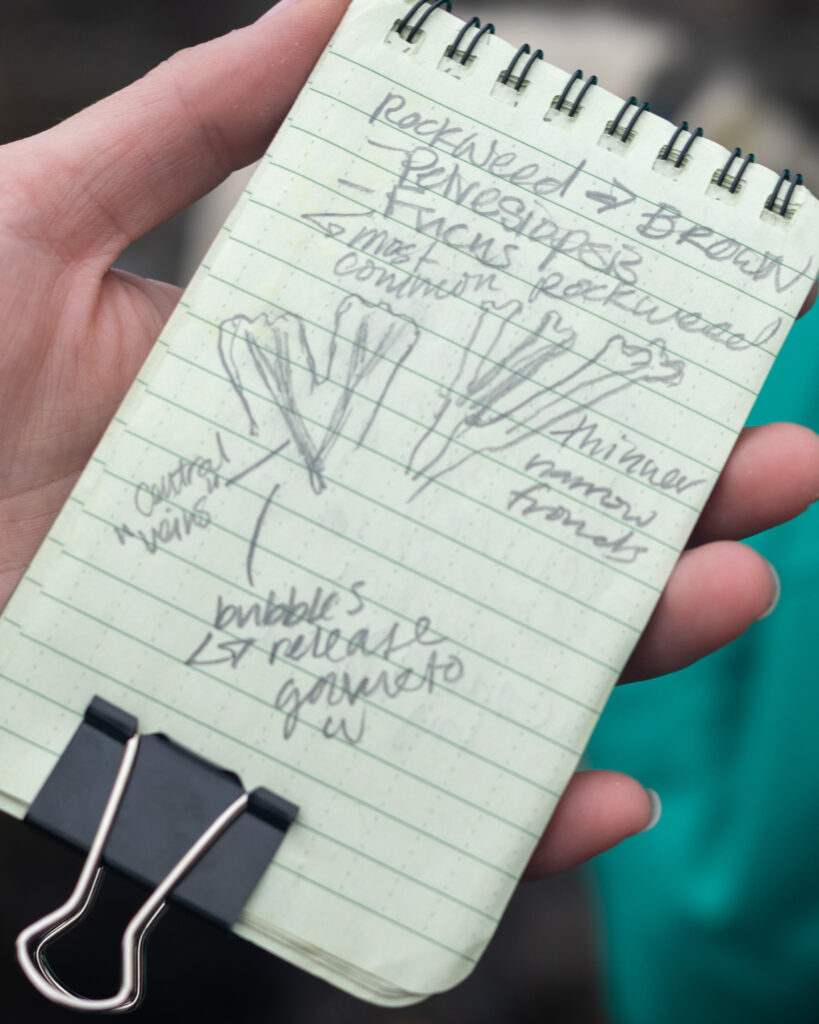 Rockweed → BROWN
- Pelvesiopsis
- Fucus rockweed
↳ most
common
central
veins
thinner
narrow
fronds
bubbles
↳ release
gamete to
w